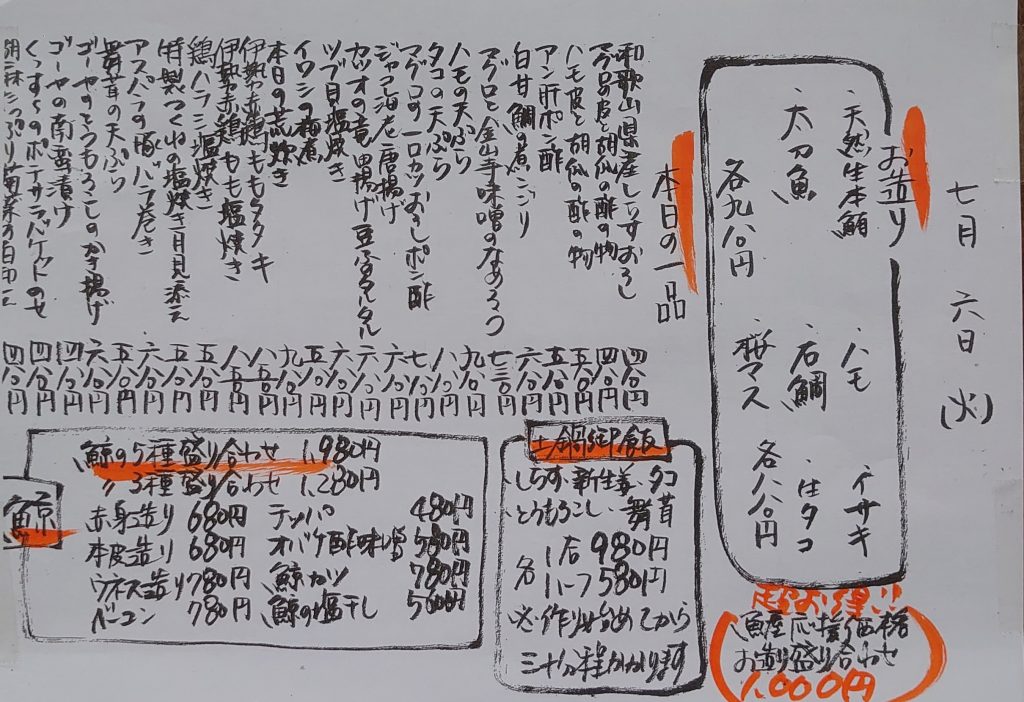 七月 六日 (火)
お造り
・天然生本鮪 ・ハモ イサキ
・太刀魚 ・石鯛 ・生タコ
各九八〇円 桜マス 各八八〇円
超お得!!
魚屋応援価格
お造り盛り合わせ
1,000円
本日の一品
和歌山県産しらすおろし 四八〇円
マグロの皮と胡瓜の酢の物 四八〇円
ハモ皮と胡瓜の酢の物 五八〇円
アン肝ポン酢 五八〇円
白甘鯛の煮こごり 六八〇円
マグロと金山寺味噌のなめろう 七三〇円
ハモの天ぷら 九八〇円
タコの天ぷら 八八〇円
マグロの一口カツおろしポン酢 七八〇円
ジャコ海老唐揚げ 六八〇円
カツオの竜田揚げ豆ふタルタル 六八〇円
ツブ貝塩焼き 六八〇円
イワシの梅煮 五八〇円
本日の荒炊き 九八〇円
伊勢赤鶏ももタタキ 八八〇円
伊勢赤鶏もも塩焼き 八八〇円
鶏ハラミ塩焼き 五八〇円
特製つくねの塩焼き月見添え 五八〇円
アスパラの豚バラ巻き 六八〇円
舞茸の天ぷら 五八〇円
ゴーヤのとうもろこしのかき揚げ 六八〇円
ゴーヤの南蛮漬け 四八〇円
くんすものポテサラバケットのせ 四八〇円
四八〇円
土鍋御飯
しらす・新生姜・タコ
とうもろこし・舞茸
各 1合 980円
ハーフ 580円
※作り始めてから
三十分程かかります
鯨
鯨の5種盛り合わせ 1,980円
〃3種盛り合わせ 1,280円
赤身造り 680円 テッパ 480円
本皮造り 680円 オバケ酢味噌 580円
ウネス造り 780円 鯨カツ 780円
ベーコン 780円 鯨の塩干し 500円